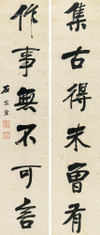 集古得未曾有
作事無不可言